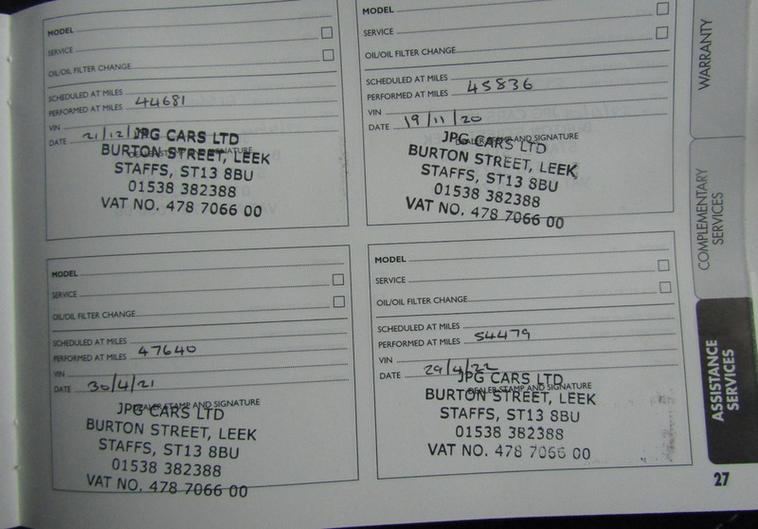 MODEL
SERVICE
OIL/OIL FILTER CHANGE
SCHEDULED AT MILES
PERFORMED AT MILES 44681
VIN
DATE 21/12/
DEALER STAMP AND SIGNATURE
JPG CARS LTD
BURTON STREET, LEEK
STAFFS, ST13 8BU
01538 382388
VAT NO. 478 7066 00
MODEL
SERVICE
OIL/OIL FILTER CHANGE
SCHEDULED AT MILES
PERFORMED AT MILES 45836
VIN
DATE 19/11/20
DEALER STAMP AND SIGNATURE
JPG CARS LTD
BURTON STREET, LEEK
STAFFS, ST13 8BU
01538 382388
VAT NO. 478 7066 00
MODEL
SERVICE
OIL/OIL FILTER CHANGE
SCHEDULED AT MILES
PERFORMED AT MILES 47640
VIN
DATE 30/4/21
DEALER STAMP AND SIGNATURE
JPG CARS LTD
BURTON STREET, LEEK
STAFFS, ST13 8BU
01538 382388
VAT NO. 478 7066 00
MODEL
SERVICE
OIL/OIL FILTER CHANGE
SCHEDULED AT MILES
PERFORMED AT MILES 54479
VIN
DATE 29/4/22
DEALER STAMP AND SIGNATURE
JPG CARS LTD
BURTON STREET, LEEK
STAFFS, ST13 8BU
01538 382388
VAT NO. 478 7066 00
WARRANTY
COMPLEMENTARY
SERVICES
ASSISTANCE
SERVICES
27